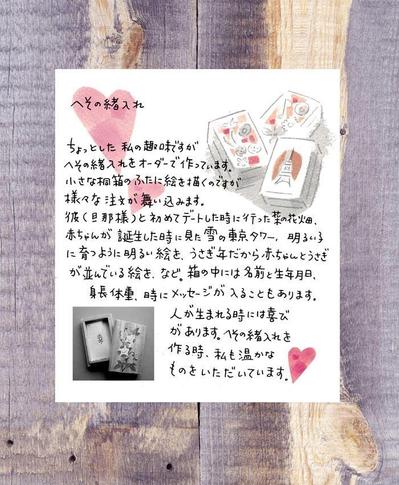 へその緒入れ
ちょっとした 私の趣味ですが
へその緒入れをオーダーで作っています。
小さな桐箱のふたに絵を描くのですが
様々な注文が舞い込みます。
彼（旦那様）と初めてデートした時に行った菜の花畑、
赤ちゃんが 誕生した時に見た 雪の東京タワー、明るい子
に育つように明るい絵を、うさぎ年だから赤ちゃんとうさぎ
が並んでいる絵を、など。箱の中には名前と生年月日、
身長体重、時にメッセージが入ることもあります。
人が生まれる時には喜び
があります。へその緒入れを
作る時、私も温かな
ものをいただいています。